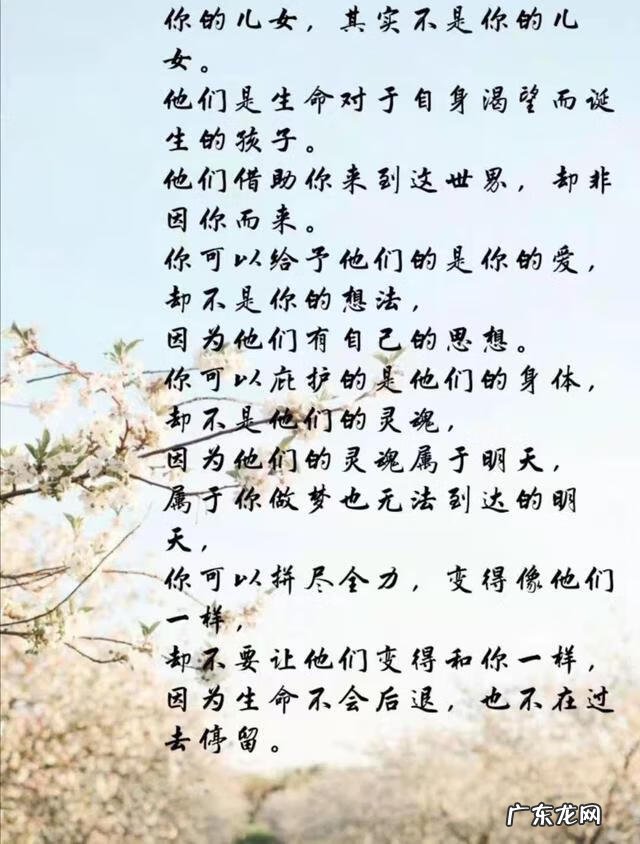 你的儿女，其实不是你的儿
女。
他们是生命对于自身渴望而诞
生的孩子。
他们借助你来到这世界，却非
因你而来。
你可以给予他们的是你的爱，
却不是你的想法，
因为他们有自己的思想。
你可以庇护的是他们的身体，
却不是他们的灵魂，
因为他们的灵魂属于明天，
属于你做梦也无法到达的明
天，
你可以拼尽全力，变得像他们
一样，
却不要让他们变得和你一样，
因为生命不会后退，也不在过
去停留。
广东龙网